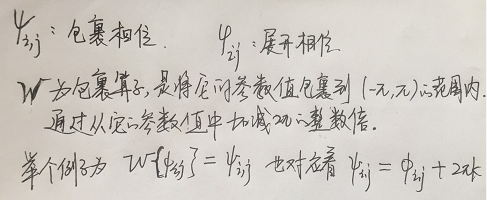 ψi,j：包裹相位. φij：展开相位
W 为包裹算子，是将它的参数值包裹到 (-π,π)的范围内.
通过从它的参数值中加减2π的整数倍.
举个例子为 W{φij} = ψi,j 也对应着 ψi,j = φi,j + 2πk